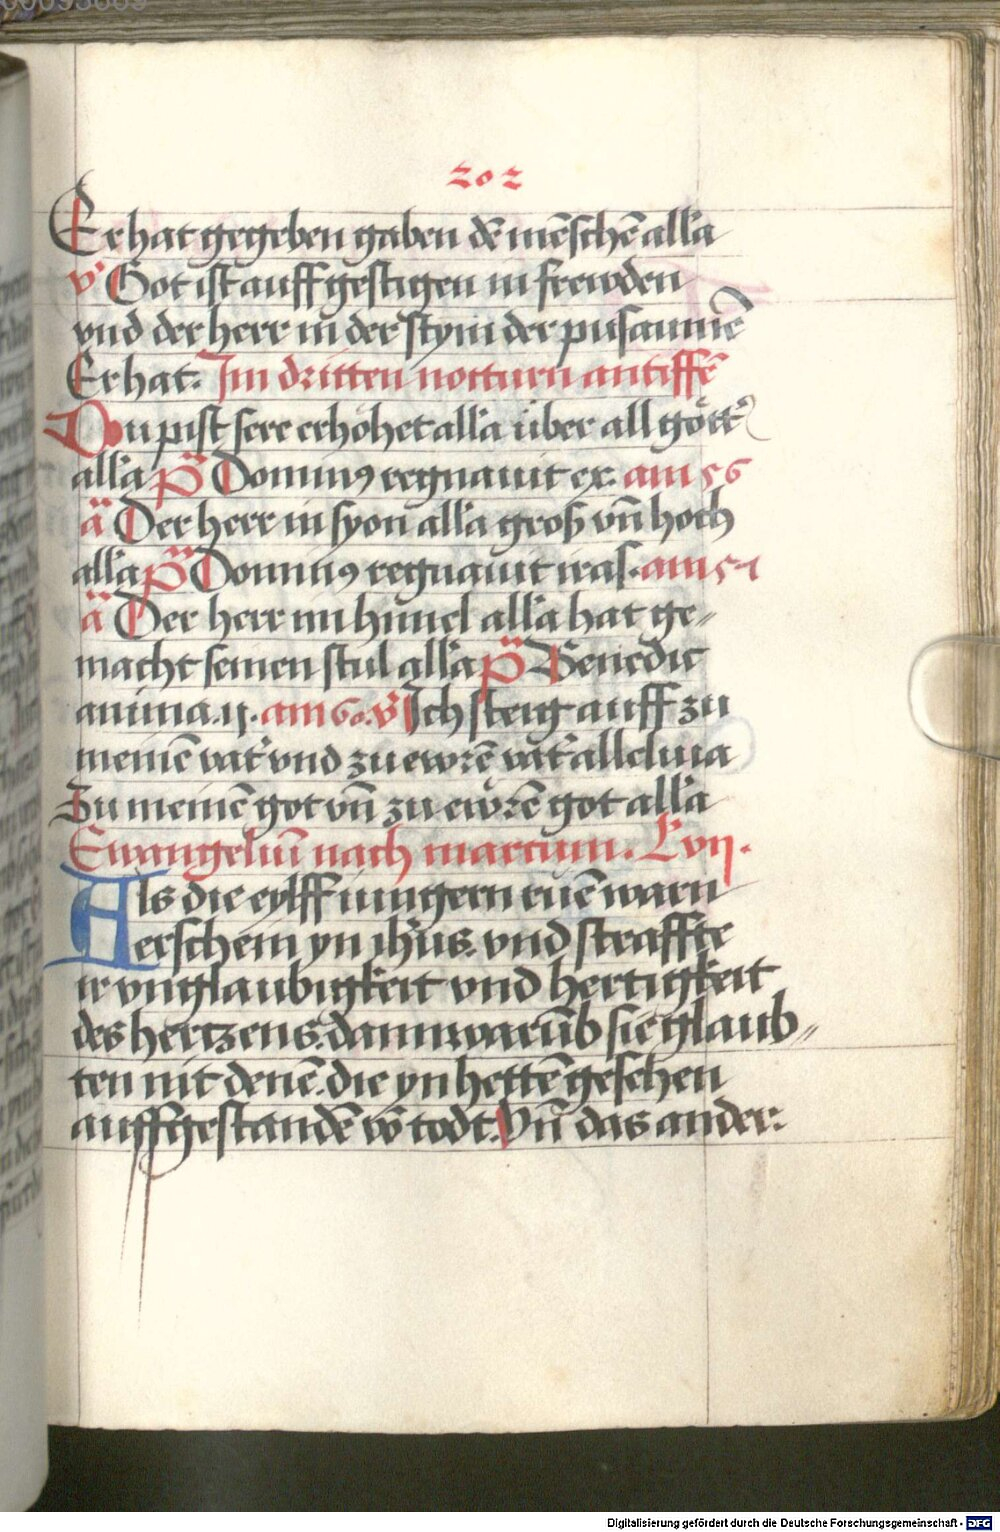 202
Er hat gegeben gaben dē mēschē alla
v̾ Got ist auffgestigen in frewden
vnd der herr in der stym der pusaunnē
Er hat. Im dritten notturn antiffē
Dou pist sere erhöhet alla über all gött̾
alla P̈ Dominꝯ regnauit ex. am 56
ä Der herr in syon alla groß vn̄ hoch
alla P̈ Dominꝯ regnauit iras. am 57
ä Der herr im himel alla hat ge⸗
macht seinen stul alla p̈ Benedic
anima .ij. am 60. v̾ Ich steig auff zu
meinē vat̾ vnd zu ewrē vat̾ alleluia
Zu meinē got vn̄ zu ewrē got alla
Ewangeliū nach marcum. Lvij.
Als die eylff iungern ruē warn
erschein yn ih̾us. vnd straffte
ir vnglaubigkeit vnd hertigkeit
des hertzens. dann warūb sie glaub⸗
ten nit denē. die yn hettē gesehen
auffgestandē vō todt. Vn̄ das ander:
Digitalisierung gefördert durch die Deutsche Forschungsgemeinschaft - DFG